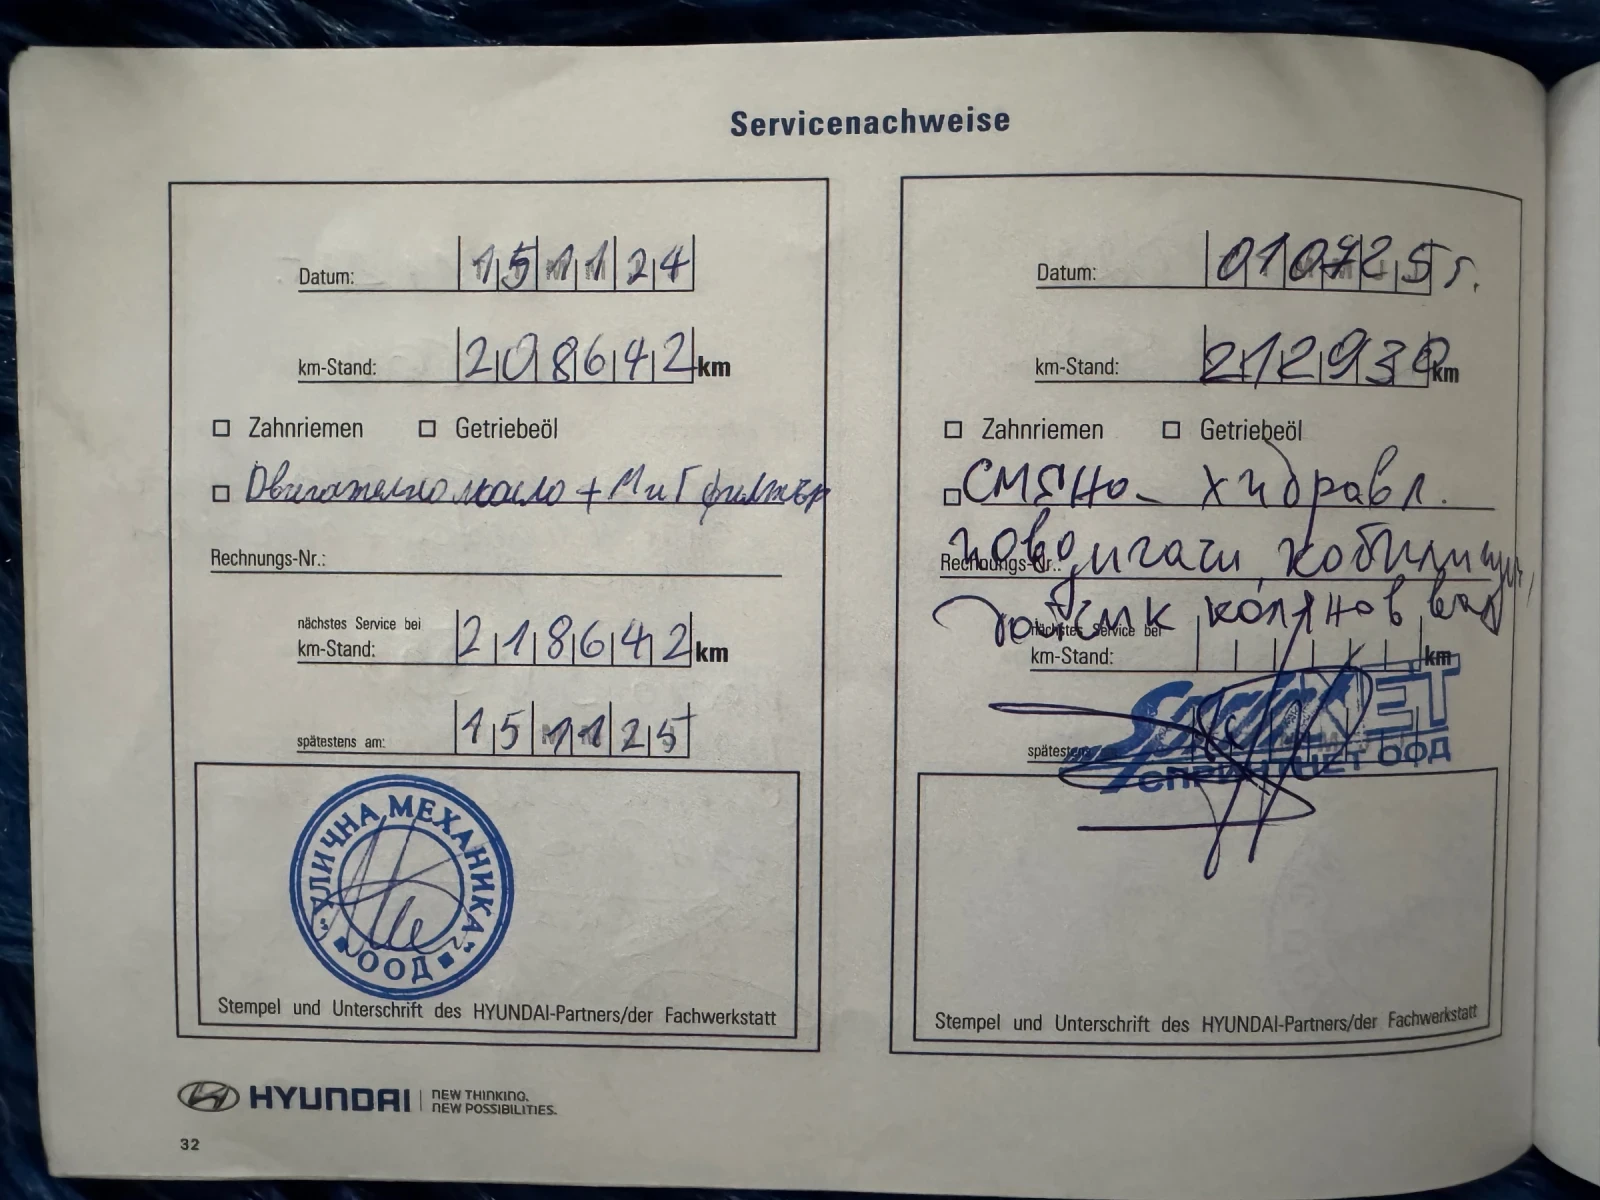 Servicenachweise
Datum: 15 11 24
km-Stand: 208642 km
Zahnriemen Getriebeöl
Двигателно масло + М и Г филтър
Rechnungs-Nr.:
nächstes Service bei
km-Stand: 218642 km
spätestens am: 15 11 25
"УЛИЧНА МЕХАНИКА" ООД
Stempel und Unterschrift des HYUNDAI-Partners/der Fachwerkstatt
Datum: 01 07 25 г.
km-Stand: 212930 km
Zahnriemen Getriebeöl
СМЯНа хидравл.
Rechnungs-Nr.: повдигачи, кобилици,
датчик колянов вал
nächstes Service bei
km-Stand: km
spätestens
SprintNET
СПРИНТНЕТ ООД
Stempel und Unterschrift des HYUNDAI-Partners/der Fachwerkstatt
HYUNDAI NEW THINKING.
NEW POSSIBILITIES.
32